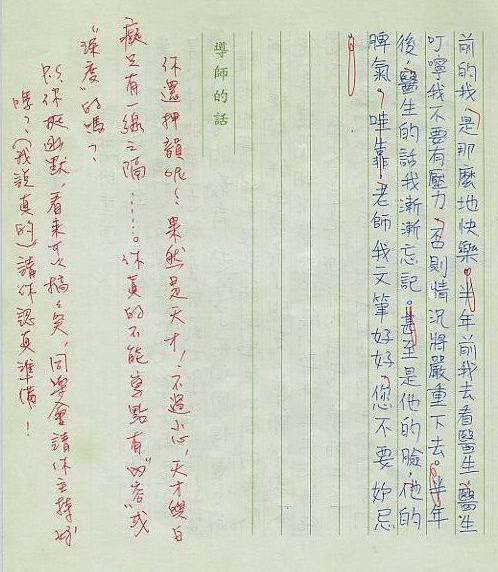 前的我,是那麼地快樂。半年前我去看醫生,醫生
叮嚀我不要有壓力,否則情況將嚴重下去。半年
後,醫生的話我漸漸忘記。甚至是他的臉,他的
脾氣,哇靠!老師我文筆好好,您不要妒忌
!
導師的話
你還押韻呢!果然是天才,不過小心,天才與白
癡只有一線之隔……。你真的不能寫點有"內容"或
"深度"的嗎?
你挺幽默,看來可以搞搞笑,同學會請你主持好
嗎?(我說真的)請你認真準備!